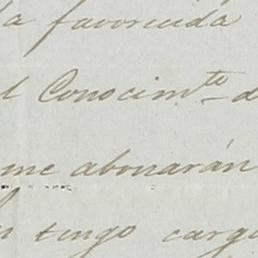 la favorecida
l Conocim^to d
me abonarán
n tengo carg